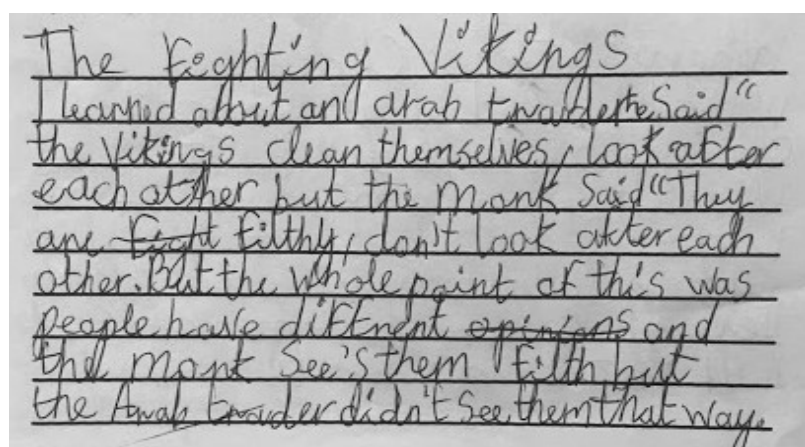 The Fighting Vikings
I learned about and arab trader he Said "
the Vikings clean themselves, look after
each other but the monk Said "They
are fight filthy, don't look after each
other. But the whole point of this was
people have different opinions and
the monk See's them filth but
the Arab trader didn't See them that way.